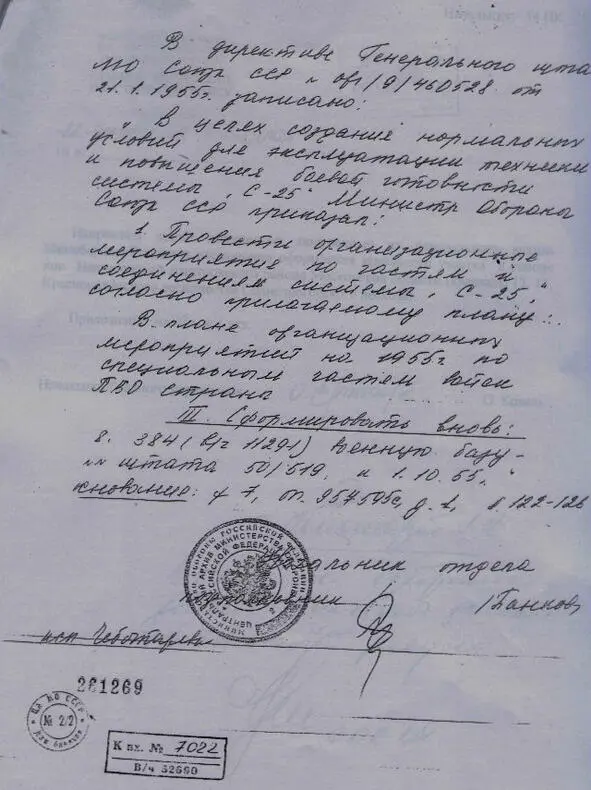 В директиве Генерального шта
МО Союза ССР № орг/9/460528 от
21.1.1955г. записано:
"В целях создания нормальных
условий для эксплуатации техники
и повышения боевой готовности
системы "С-25" Министр Обороны
Союза ССР приказал:
1. Провести организационные
мероприятие по частям и
соединениям системы "С-25"
согласно прилагаемому плану:.
В плане организационных
мероприятий на 1955г. по
специальным частям войск
ПВО страны
III. Сформировать вновь:
8. 384 (в/ч 11291) военную базу -
штата 50/519, к 1.10.55,"
снование: ф 7, оп. 957595с, д. 1, л. 122-126
чальник отдела
/Панков/
исп Чеботарева
261269
ЦА МО СССР
№ 2/2
К вх. № 7022
В/ч 52690